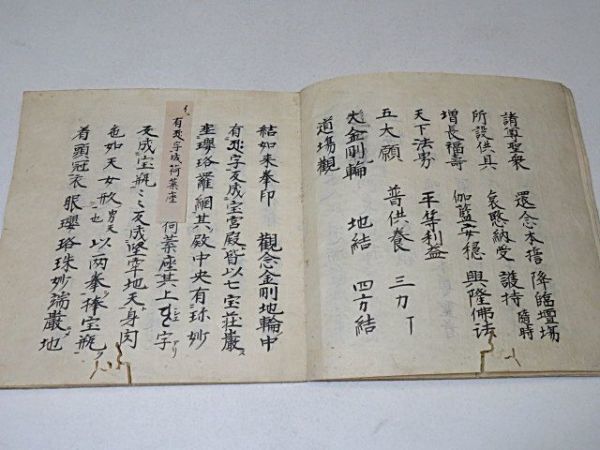 諸尊聖衆 還念本誓 降臨壇場
所設供具 哀愍納受 護持 随時
増長福壽 伽藍安穏 興隆佛法
天下法界 平等利益
五大願 普供養 三力
大金剛輪 地結 四方結
道場觀
結如来拳印 觀念金剛地輪中
有 字变成宝宮殿皆以七宝荘嚴
瓔珞羅網其殿中央有 妙
有 字成荷葉座
荷葉座其上 字
变成宝瓶 变成堅牢地天身肉
色如天女形 也 以两拳捧宝瓶
着頭冠衣服瓔珞珠妙端嚴地